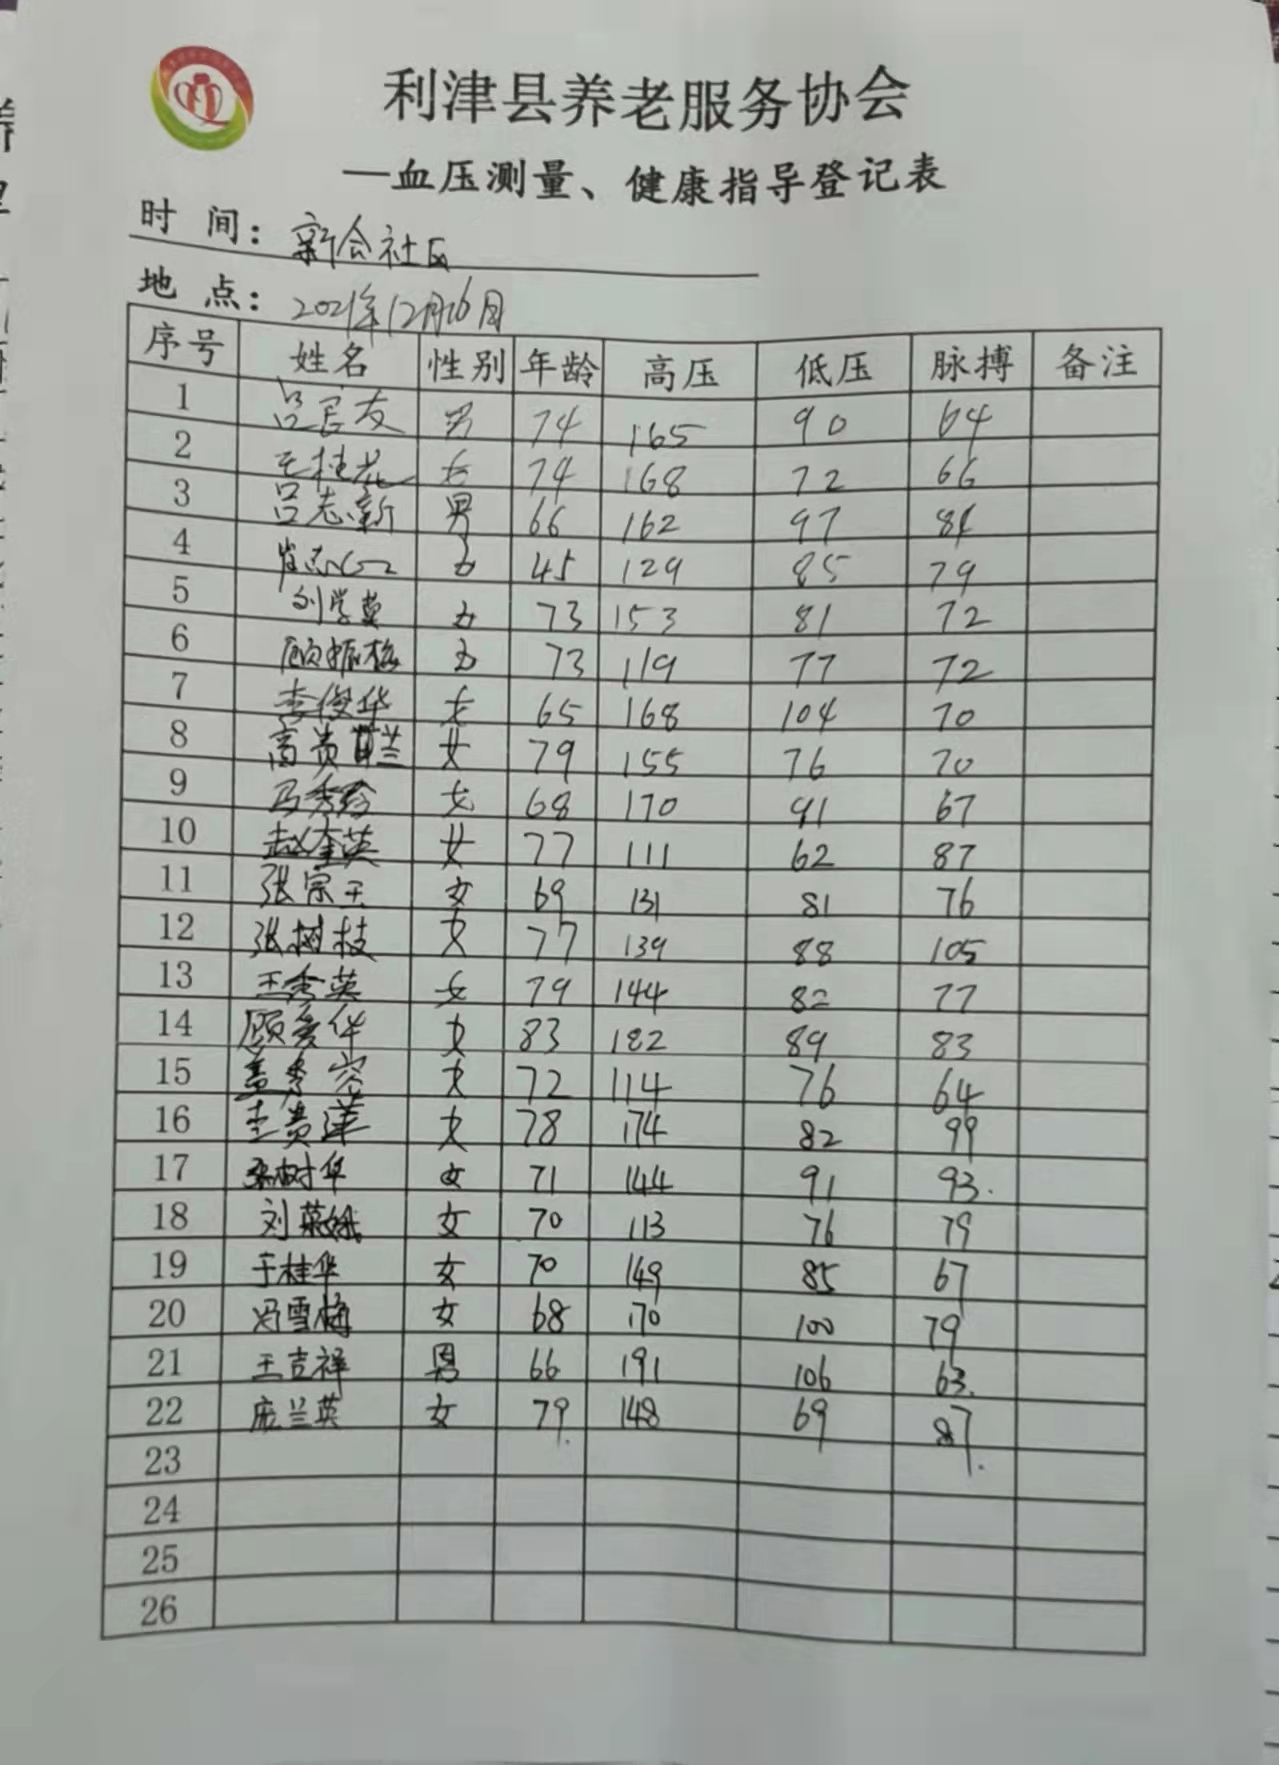 利津县养老服务协会
—血压测量、健康指导登记表
时 间： 新会社区
地 点： 2021年12月16日
序号 姓名 性别 年龄 高压 低压 脉搏 备注
1 吕官友 男 74 165 90 64
2 王桂花 女 74 168 72 66
3 吕志新 男 66 162 97 84
4 女 45 129 85 79
5 刘学英 女 73 153 81 72
6 顾振梅 女 73 119 77 72
7 李俊华 女 65 168 104 70
8 高贵兰 女 79 155 76 70
9 马秀珍 女 68 170 91 67
10 赵奎英 女 77 111 62 87
11 张宗玉 女 69 131 81 76
12 张树枝 女 77 139 88 105
13 王秀英 女 79 144 82 77
14 顾爱华 女 83 182 89 83
15 盖秀容 女 72 114 76 64
16 女 78 174 82 99
17 张树华 女 71 144 91 93.
18 刘英娥 女 70 113 76 79
19 于桂华 女 70 149 85 67
20 冯雪梅 女 68 170 100 79
21 王吉祥 男 66 191 106 63.
22 庞兰英 女 79. 148 69 87.
23
24
25
26